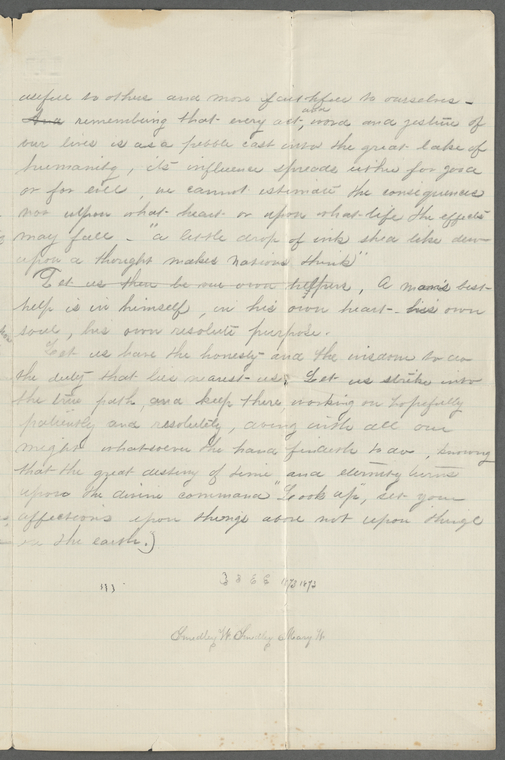 useful to others and more faithful to ourselves -
And remembering that every act, word and gesture of
our lives is as a pebble cast into the great lake of
humanity, its influence spreads either for good
or for evil, we cannot estimate the consequences
nor upon what heart or upon what life the effects
may fall - "a little drop of ink shed like dew
upon a thought makes Nations think"
Let us then be our own helpers, A man's best
help is in himself, in his own heart - his own
soul, his own resolute purpose.
Let us have the honesty and the wisdom to do
the duty that lies nearest us; Let us strike into
the true path, and keep there, working on hopefully
patiently and resolutely, doing with all our
might whatsoever the hand findeth to do, knowing
that the great destiny of time and eternity turns
upon the divine command "Look up, set your
affections upon things above not upon things
on the earth.)
1873 1873
Smedley W. Smedley Mary W